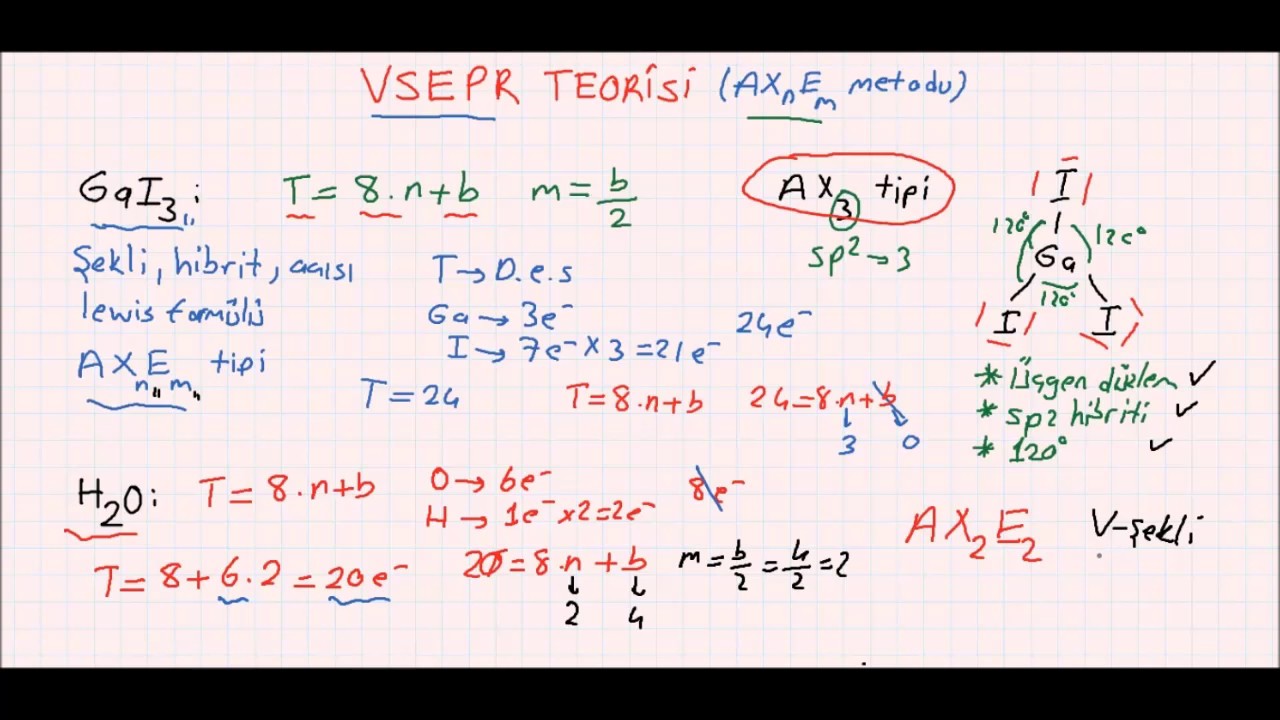 VSEPR TEORİSİ (AXnEm metodu)
GaI3 : T = 8.n + b m = b/2 AX3 tipi
sp2 → 3
Şekli, hibrit, açısı
lewis formülü
AXnEm tipi
T → D.e.s
Ga → 3e⁻
I → 7e⁻ x 3 = 21e⁻ 24e⁻
T = 24 T = 8.n + b 24 = 8.n + b
3 0
I
120° 120°
Ga
120°
I I
* Üçgen düzlem ✓
* sp2 hibriti ✓
* 120° ✓
H2O: T = 8.n + b O → 6e⁻ 8e⁻
H → 1e⁻ x 2 = 2e⁻
T = 8 + 6.2 = 20e⁻ 20 = 8.n + b m = b/2 = 4/2 = 2
2 4
AX2E2 V-şekli